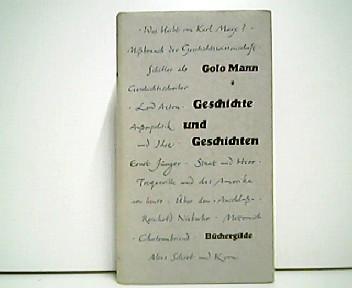 · Was bleibt von Karl Marx? ·
Mißbrauch der Geschichtswissenschaft ·
Schiller als Golo Mann
Geschichtschreiber
· Lord Acton · Geschichte
Außenpolitik und
und Ihre · Geschichten
Ernst Jünger · Staat und Heer ·
Tocqueville und das Amerika
von heute · Über den "Anschluß" ·
Reinhold Niebuhr · Metternich
· Chateaubriand · Büchergilde
Alles Schrot und Korn